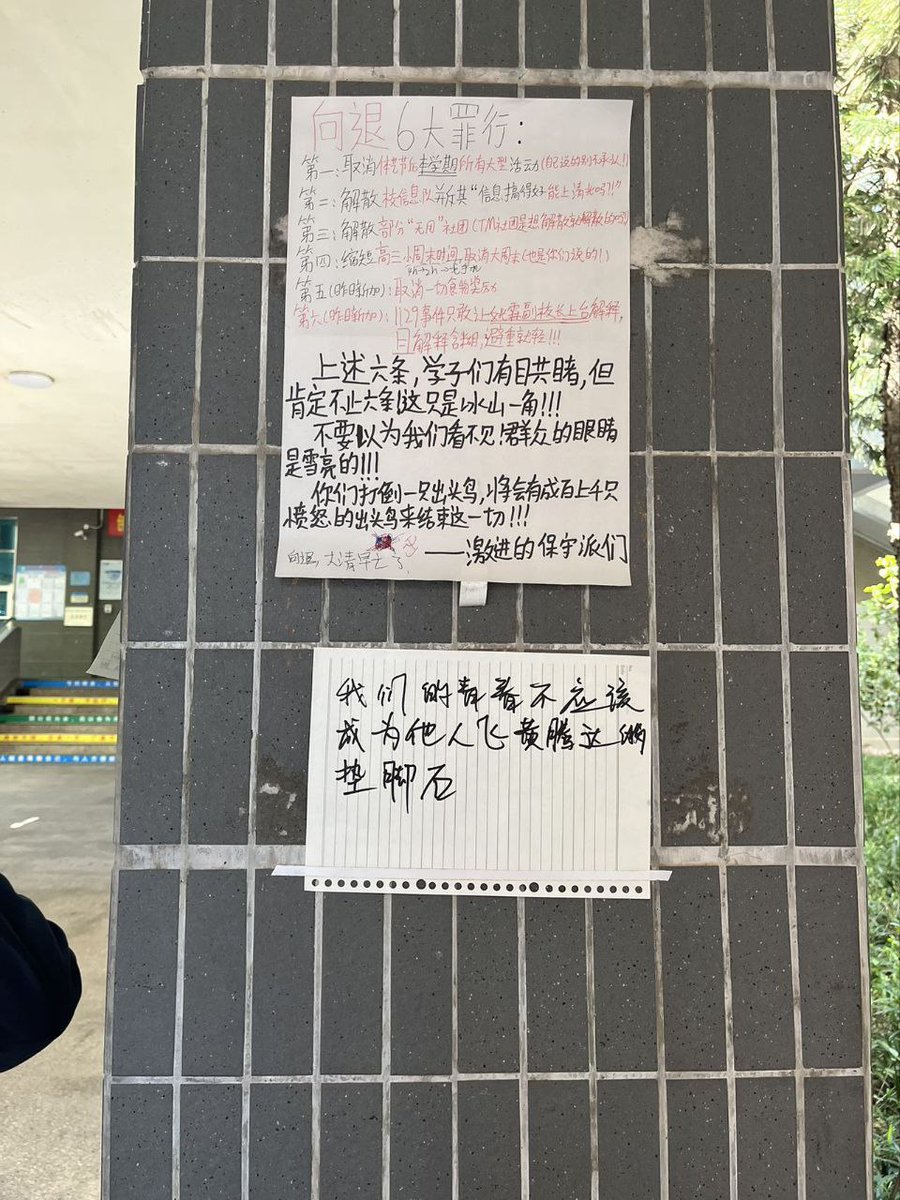 向退6大罪行:
第一:取消体艺节后本学期所有大型活动(自己说的别不承认!)
第二:解散校信息队并斥其“信息搞得好能上清北吗?!”
第三:解散部分“无用”社团(TM社团是想解散就解散的吗)
第四:缩短高三小周末时间,取消大周末(也是你们说的!)
第五(昨晚新加):取消一切食物
第六(昨晚新加):1129事件只敢让女副校长上台解释,
且解释含糊,避重就轻!!!
上述六条,学子们有目共睹,但
肯定不止六条(这只是冰山一角!!!
不要以为我们看不见!群众的眼睛
是雪亮的!!!
你们打倒一只出头鸟,将会有成百上千只
愤怒的出头鸟来结束这一切!!!
——激进的保守派们
向退,大清早亡了,
我们的青春不应该
成为他人飞黄腾达的
垫脚石